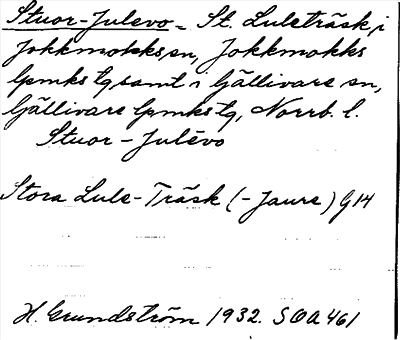 Stuor-Julevo - St. Luleträsk, i
Jokkmokks sn, Jokkmokks
lpmks tg samt i Gällivare sn,
Gällivare lpmks tg, Norrb. l.
Stuor-Julēvo
Stora Lule-Träsk (-Jaure) G14
H. Grundström 1932. SOA 461